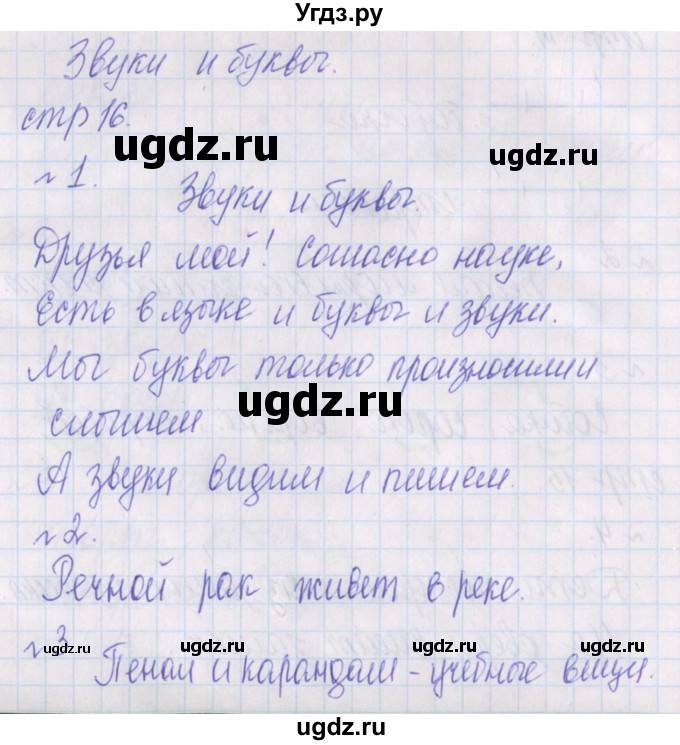 Угдз.ру
Звуки и буквы.
стр 16.
ugdz.ru ugdz.ru
№1. Звуки и буквы.
Друзья мой! Согласно науке,
Есть в языке и буквы и звуки.
Мы буквы только произносим и
ugdz.ru
слышим
А звуки видим и пишем.
№2.
Речной рак живет в реке.
№3
ugdz.ru ugdz.ru ugdz.ru
Пенал и карандаш – учебные вещи.
ugdz.ru